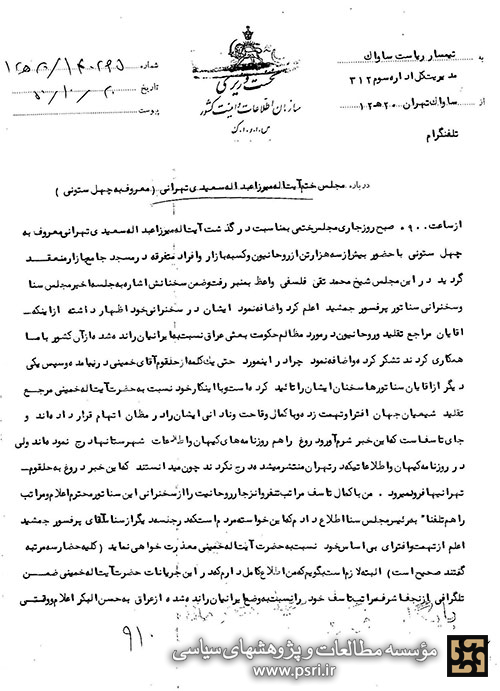 به تیمسار ریاست ساواک
مدیریت کل اداره سوم ۳۱۲
از ساواک تهران ۲۰ ه‍ ۱۲
تلفنگرام
نخست وزیری
سازمان اطلاعات و امنیت کشور
س.ا.و.ا.ک
شماره
تاریخ
پیوست
درباره مجلس ختم آیت اله میرزا عبد اله سعیدی تهرانی (معروف به چهل ستونی)
از ساعت ۰۹۰۰ صبح روز جاری مجلس ختمی بمناسبت در گذشت آیت اله میرزا عبد اله سعیدی تهرانی معروف به
چهل ستونی با حضور بیش از سه هزار تن از روحانیون و کسبه بازار و افراد متفرقه در مسجد جامع بازار منعقد
گردید در این مجلس شیخ محمد تقی فلسفی واعظ بمنبر رفت و ضمن سخنانش اشاره به جلسه اخیر مجلس سنا
و سخنرانی سناتور پرفسور جمشید اعلم کرد و اضافه نمود ایشان در سخنرانی خود اظهار داشته از اینکه
آقایان مراجع تقلید و روحانیون در مورد مظالم حکومت بعثی عراق نسبت به ایرانیان رانده شده از آن کشور با ما
همکاری کردند تشکر کرد و اضافه نمود چرا در اینمورد حتی یک کلمه از حلقوم آقای خمینی در نیامده و سپس یکی
دیگر از آقایان سناتورها سخنان ایشان را تائید کرده است و با اینکار خود نسبت به حضرت آیت اله خمینی مرجع
تقلید شیعیان جهان افترا و تهمت زده و با کمال وقاحت و نادانی ایشان را در مظان اتهام قرار داده اند و
جای تاسف است که این خبر شرم آور و دروغ را هم روزنامه های کیهان و اطلاعات شهرستانها درج نموده اند ولی
در روزنامه کیهان و اطلاعاتیکه در تهران منتشر میشد درج نکردند چون میدانستند که این خبر دروغ به حلقوم
تهرانیها فرو نمیرود . من با کمال تاسف مراتب تنفر و انزجار روحانیت را از سخنرانی این سناتور محترم اعلام و مراتب
را هم تلفناً به رئیس مجلس سنا اطلاع دادم که این خواسته مردم است که در جلسه دیگر از سنا آقای پرفسور جمشید
اعلم از تهمت و افترای بی اساس خود نسبت به حضرت آیت اله خمینی معذرت خواهی نماید (کلیه حضار سه مرتبه
گفتند صحیح است) البته لازم است بگویم که من اطلاع کامل دارم که در این جریانات حضرت آیت اله خمینی ضمن
تلگرافی از نجف اشرف مراتب تاسف خود را نسبت به وضع ایرانیان رانده شده از عراق به حسن البکر اعلام و وقتی
۹۱۰
مؤسسه مطالعات و پژوهشهای سیاسی
www.psri.ir